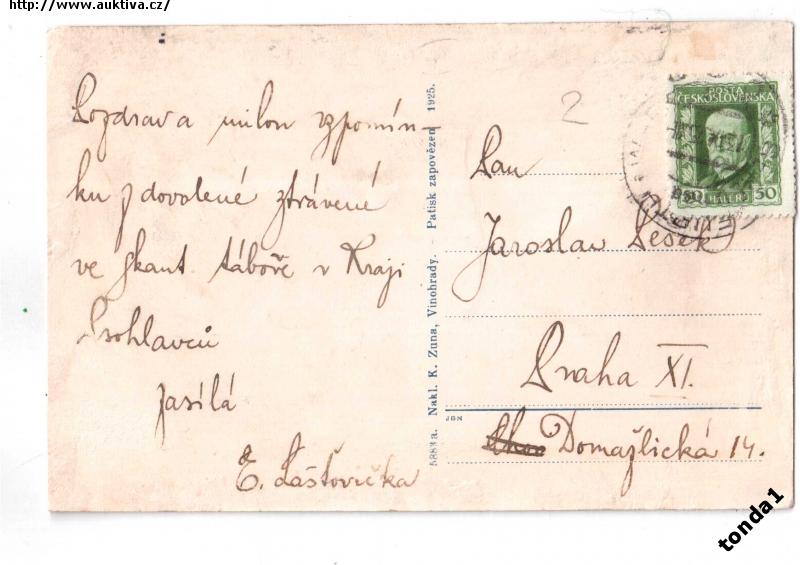 http://www.auktiva.cz/
Pozdrav a milou vzpomín-
ku z dovolené ztrávené
ve skaut. táboře v Kraji
Psohlavců
Zasílá
E. Laštovička
5883 a. Nakl. K. Zuna, Vinohrady. - Patisk zapovězen 1925.
2
POŠTA
ČESKOSLOVENSKÁ
50 HALÉŘŮ 50
Pan
Jaroslav Pešek
Praha XI.
JBN
Domažlická 14.
tonda1